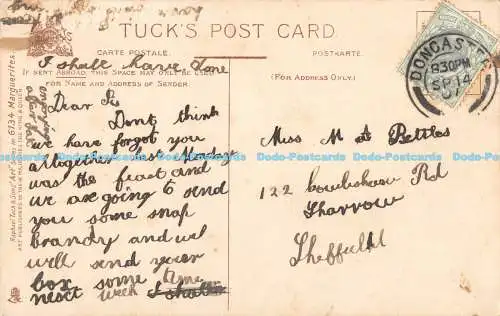 TUCK'S POST CARD.
CARTE POSTALE.
POSTKARTE.
I shall have done
IF SENT ABROAD, THIS SPACE MAY ONLY BE USED
FOR NAME AND ADDRESS OF SENDER.
(FOR ADDRESS ONLY.)
DONCASTER
830PM
SP 14
07
Dear
Dont think
we have forgot you
alltogether last Monday
was the feast and
we are going to send
you some snap
brandy and wel
will send your
box some time
next week I shall
Miss M A Pettles
122 Cowlishaw Rd
Sharrow
Sheffield
Raphael Tuck & Sons' "Art" Series No 6134 Marguerites.
ART PUBLISHERS TO THEIR MAJESTIES THE KING & QUEEN.
Dodo-Postcards Dodo-Postcards Dodo-Postcards Dodo-Postcards Dodo-Postcards